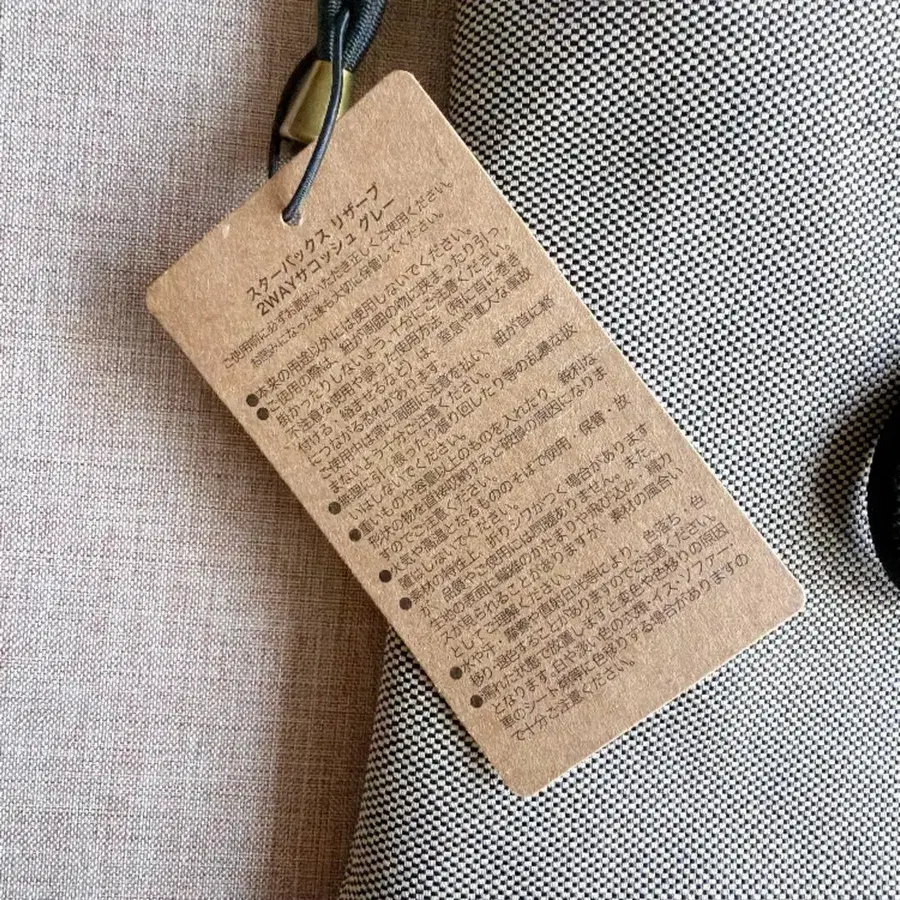 スターバックス リザーブ
2WAYサコッシュ グレー
ご使用前に必ずお読みいただき正しくご使用ください。
お読みになった後も大切に保管してください。
●本来の用途以外には使用しないでください。
●ご使用の際は、紐が周囲の物に染まったり引っ
掛かったりしないよう、十分にご注意ください。
不注意な使用や誤った使用方法(特に首に巻き
付ける、絡ませるなど)は、窒息や重大な事故
につながる恐れがあります。
ご使用中は常に周囲に注意を払い、紐が首に絡
まないよう十分ご注意ください。
●無理に引っ張ったり振り回したり等の乱暴な扱
いはしないでください。
●重いものや容量以上のものを入れたり、鋭利な
形状の物を直接収納すると破損の原因になりま
すのでご注意ください。
●火気や高温となるもののそばで使用・保管・放
置しないでください。
●素材の特性上、折りジワがつく場合があります
が、品質やご使用には問題ありません。また、
生地の表面に繊維のかたまりや飛び込み・織り
スが見られることがありますが、素材の風合い
としてご理解ください。
●水や汗、摩擦や直射日光等により、色落ち・色
移り・退色することがありますのでご注意ください。
●濡れた状態で放置しますと変色や色移りの原因
となります。白や淡い色の衣類・イス・ソファー・
車のシート部等に色移りする場合がありますの
で十分ご注意ください。